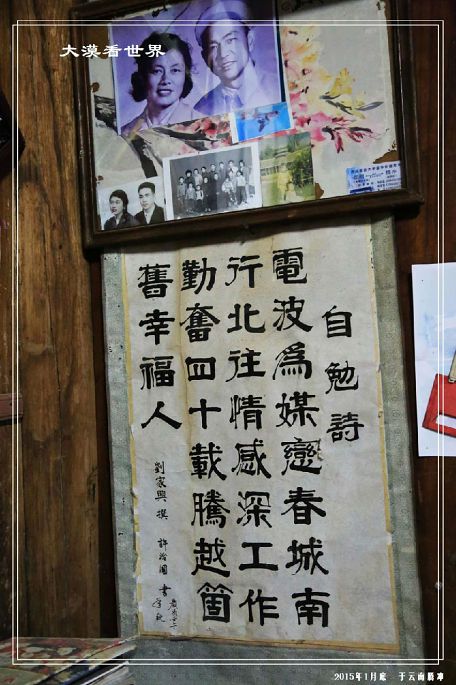 大漠看世界
自勉詩
電波爲媒戀春城南
行北往情感深工作
勤奮四十載騰越箇
舊幸福人
劉家興 撰 書
2015年1月底 于云南腾冲